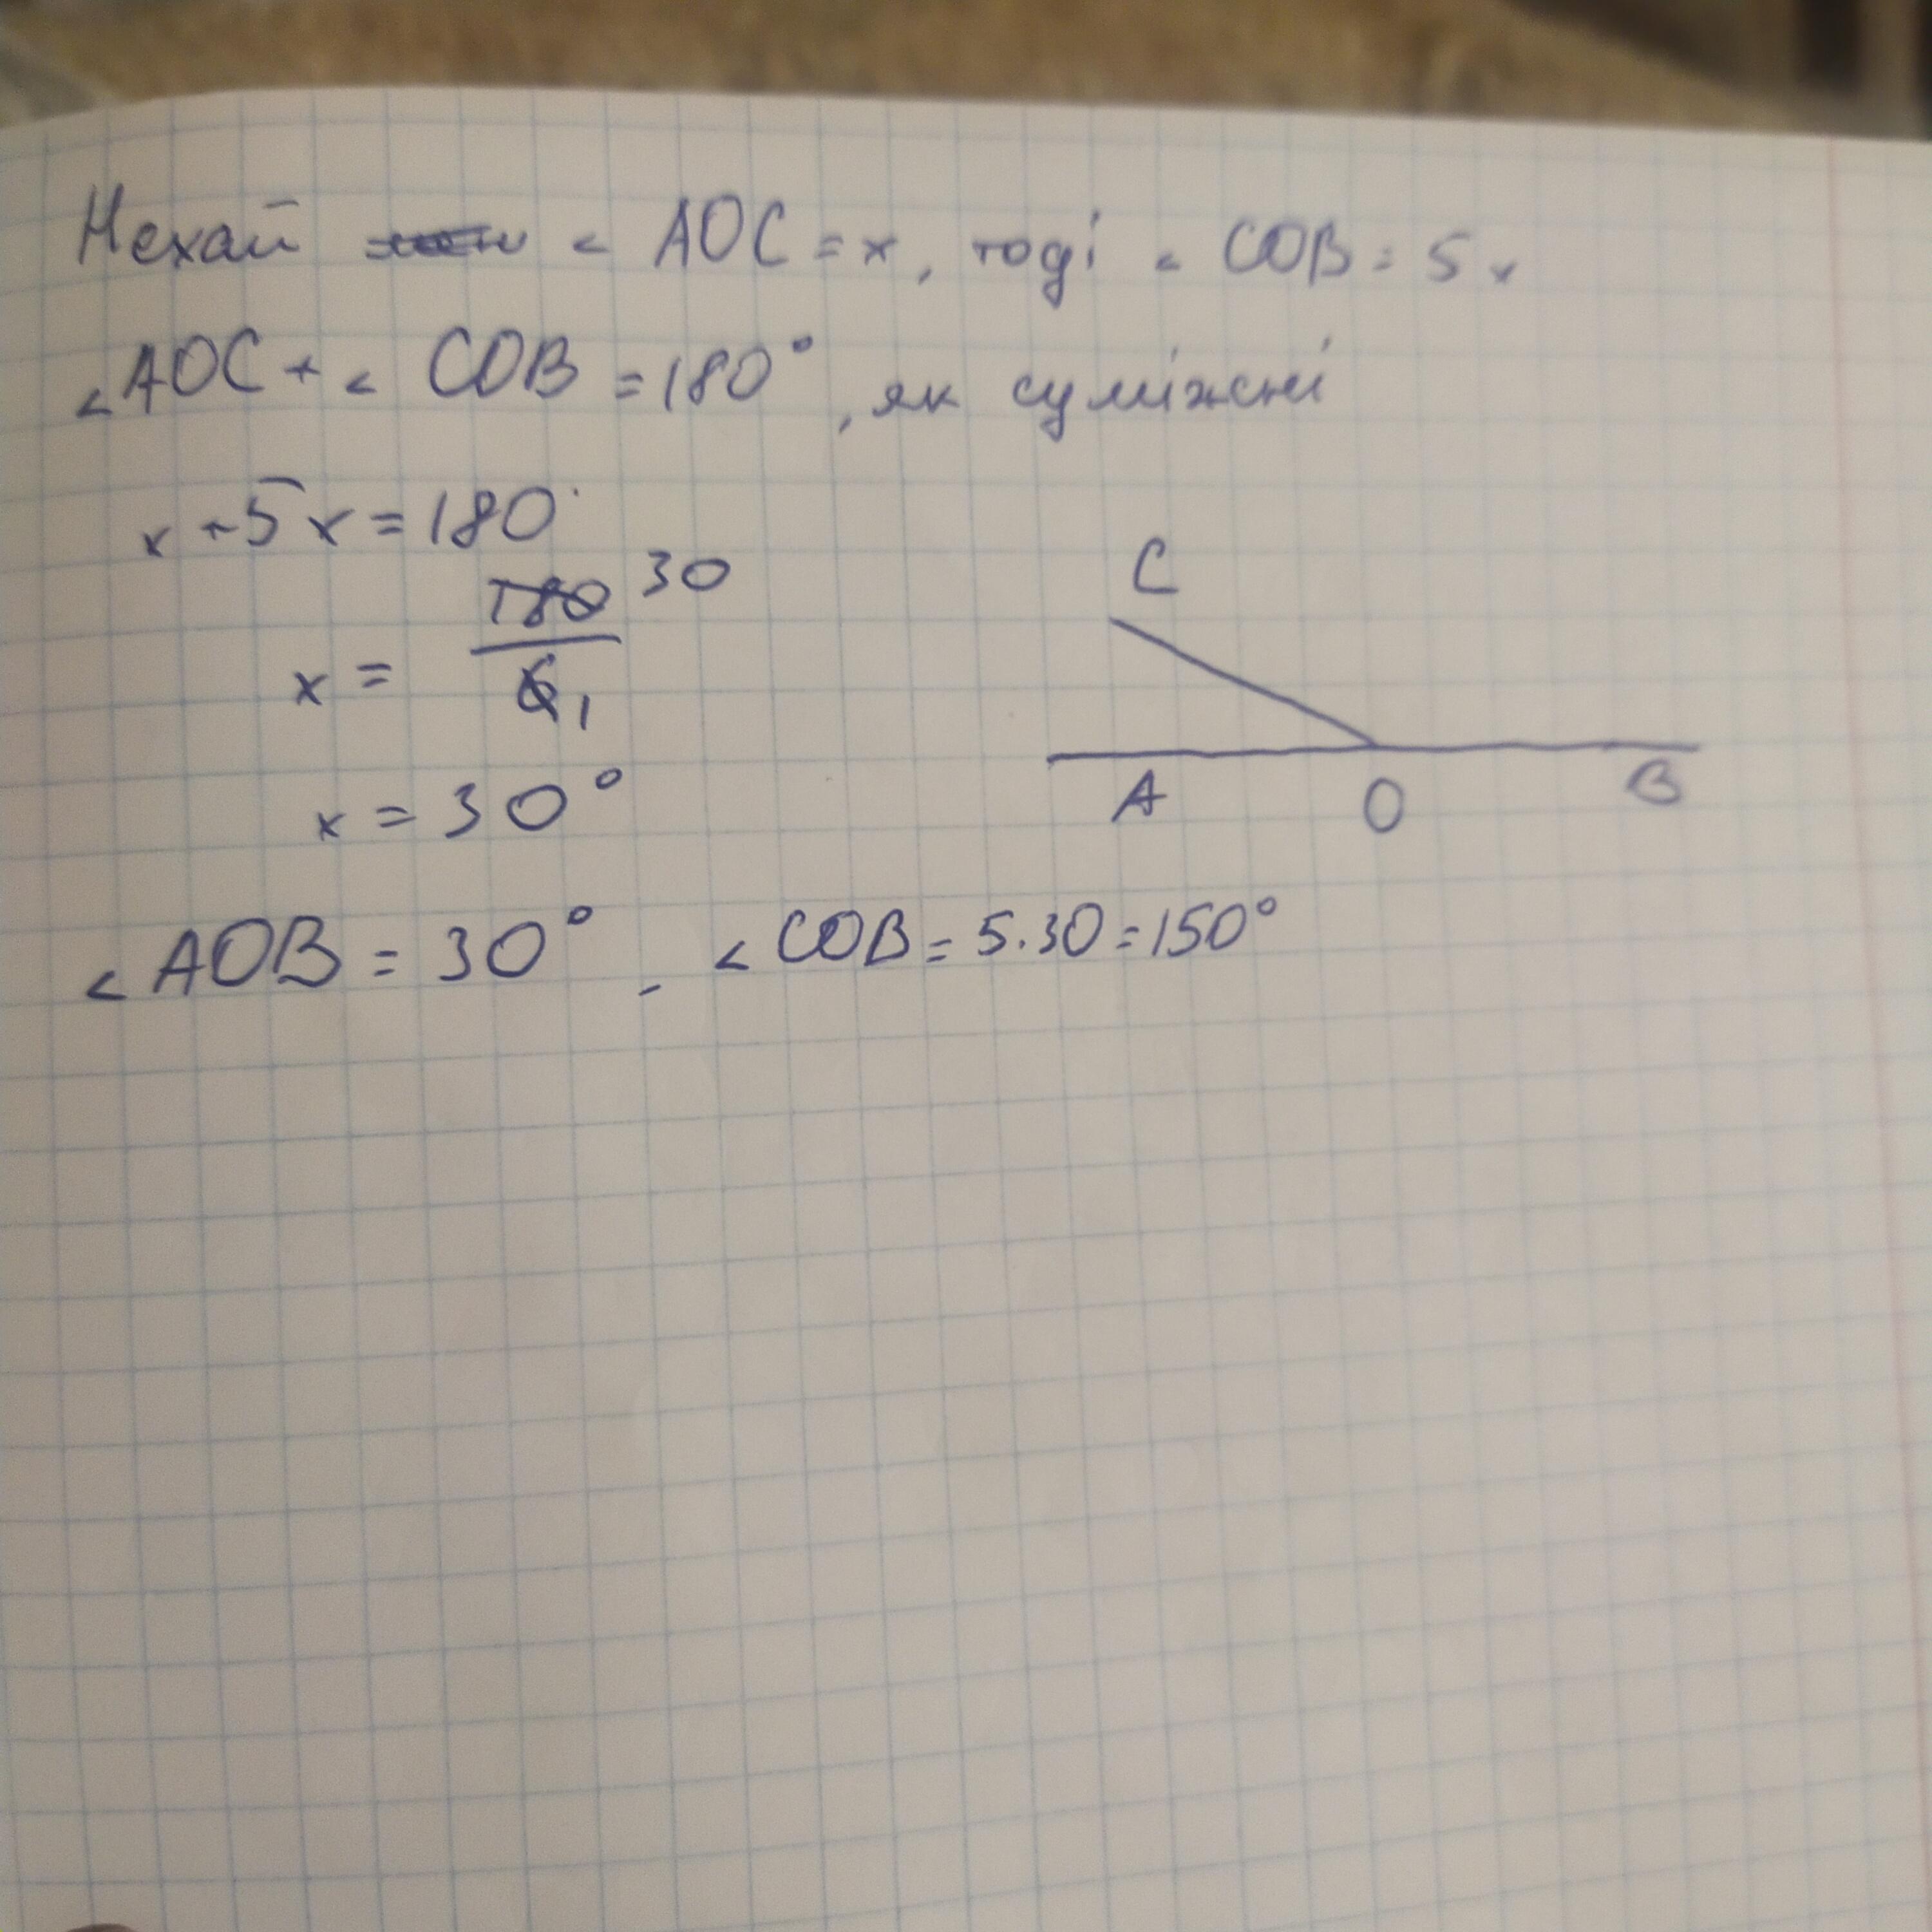 Нехай < AOC = x, тоді < COB = 5x
< AOC + < COB = 180°, як суміжні
x + 5x = 180°
x = 180 30
6 1
x = 30°
C
A O B
< AOB = 30°, < COB = 5·30 = 150°